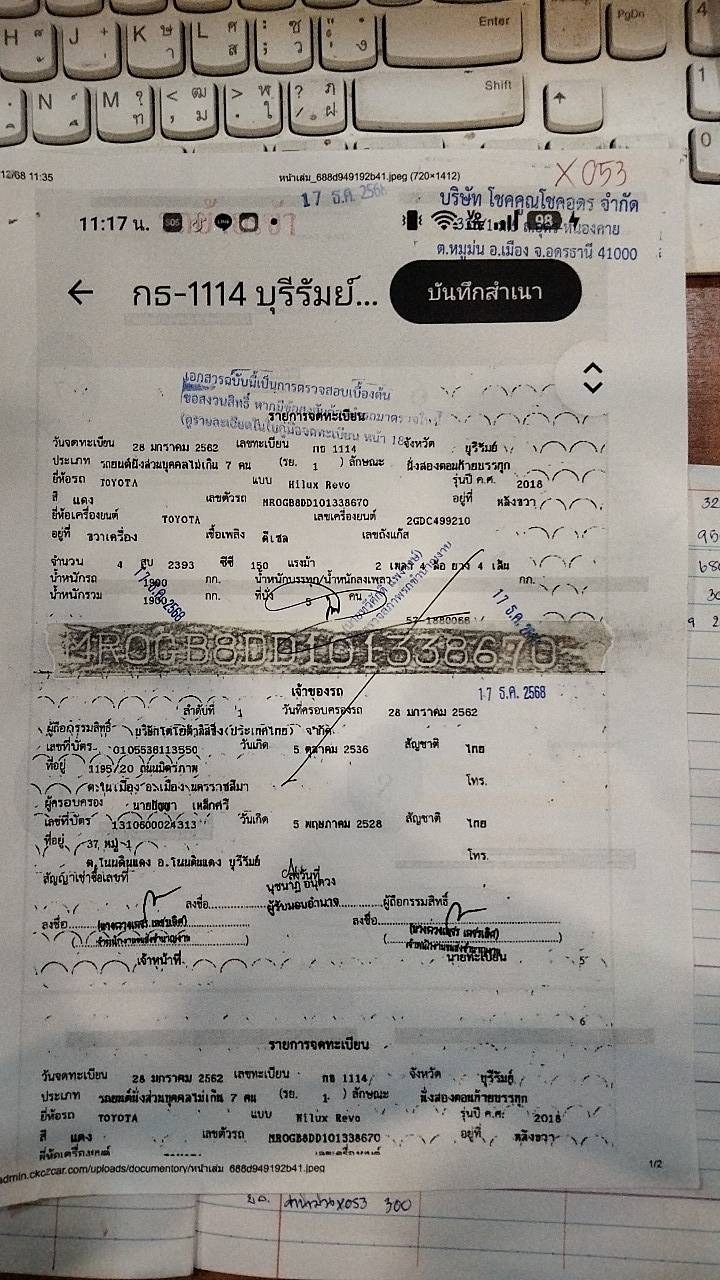 H J K ษ า L ศ ส : ; ซ ว " ' ง Enter PgDn 4
N M ? ท < , ฒ ม > . ฬ ใ ? / ฦ ฝ Shift 1
0
12/68 11:35 หน้าเล่ม_688d949192b41.jpeg (720×1412) X053
17 ธ.ค. 2568 บริษัท โชคคูณโชคอุดร จำกัด
11:17 น. SOS 98
หนองคาย
ต.หมูม่น อ.เมือง จ.อุดรธานี 41000
กธ-1114 บุรีรัมย์... บันทึกสำเนา
เอกสารฉบับนี้เป็นการตรวจสอบเบื้องต้น
ขอสงวนสิทธิ์ หากมี
(ดูรายละเอียดในใบคู่มือจดทะเบียน หน้า 18
รายการจดทะเบียน
วันจดทะเบียน 28 มกราคม 2562 เลขทะเบียน กธ 1114 จังหวัด บุรีรัมย์
ประเภท รถยนต์นั่งส่วนบุคคลไม่เกิน 7 คน (รย. 1 ) ลักษณะ นั่งสองตอนท้ายบรรทุก
ยี่ห้อรถ TOYOTA แบบ Hilux Revo รุ่นปี ค.ศ. 2018
สี แดง เลขตัวรถ MROGB8DD101338670 อยู่ที่ หลังขวา
ยี่ห้อเครื่องยนต์ TOYOTA เลขเครื่องยนต์ 2GDC499210
อยู่ที่ ขวาเครื่อง เชื้อเพลิง ดีเซล เลขถังแก๊ส
จำนวน 4 สูบ 2393 ซีซี 150 แรงม้า 2 เพลา 4 ล้อ ยาง 4 เส้น
น้ำหนักรถ 1900 กก. น้ำหนักบรรทุก/น้ำหนักลงเพลา กก.
น้ำหนักรวม 1900 กก. ที่นั่ง 5 คน
17 ธ.ค. 2568 17 ธ.ค.
57 1880066
4R0GB8DD101338670
เจ้าของรถ 17 ธ.ค. 2568
ลำดับที่ 1 วันที่ครอบครองรถ 28 มกราคม 2562
ผู้ถือกรรมสิทธิ์ บริษัทโตโยต้าลีสซิ่ง(ประเทศไทย) จำกัด
เลขที่บัตร 0105536113550 วันเกิด 5 ตุลาคม 2536 สัญชาติ ไทย
ที่อยู่ 1195/20 ถนนมิตรภาพ
ต.ในเมือง อ.เมือง นครราชสีมา โทร.
ผู้ครอบครอง นายปัญญา เหล็กศรี
เลขที่บัตร 1310600024313 วันเกิด 5 พฤษภาคม 2528 สัญชาติ ไทย
ที่อยู่ 37 หมู่ 1
ต.โนนดินแดง อ.โนนดินแดง บุรีรัมย์ โทร.
สัญญาเช่าซื้อเลขที่ ลงวันที่
ลงชื่อ ผู้รับมอบอำนาจ ผู้ถือกรรมสิทธิ์
ลงชื่อ ลงชื่อ
เจ้าหน้าที่ นายทะเบียน 5
6
รายการจดทะเบียน
วันจดทะเบียน 28 มกราคม 2562 เลขทะเบียน กธ 1114 จังหวัด บุรีรัมย์
ประเภท รถยนต์นั่งส่วนบุคคลไม่เกิน 7 คน (รย. 1 ) ลักษณะ นั่งสองตอนท้ายบรรทุก
ยี่ห้อรถ TOYOTA แบบ Hilux Revo รุ่นปี ค.ศ. 2018
สี แดง เลขตัวรถ MROGB8DD101338670 อยู่ที่ หลังขวา
admin.ckc2car.com/uploads/documentory/หน้าเล่ม_688d949192b41.jpeg 1/2
X053 300